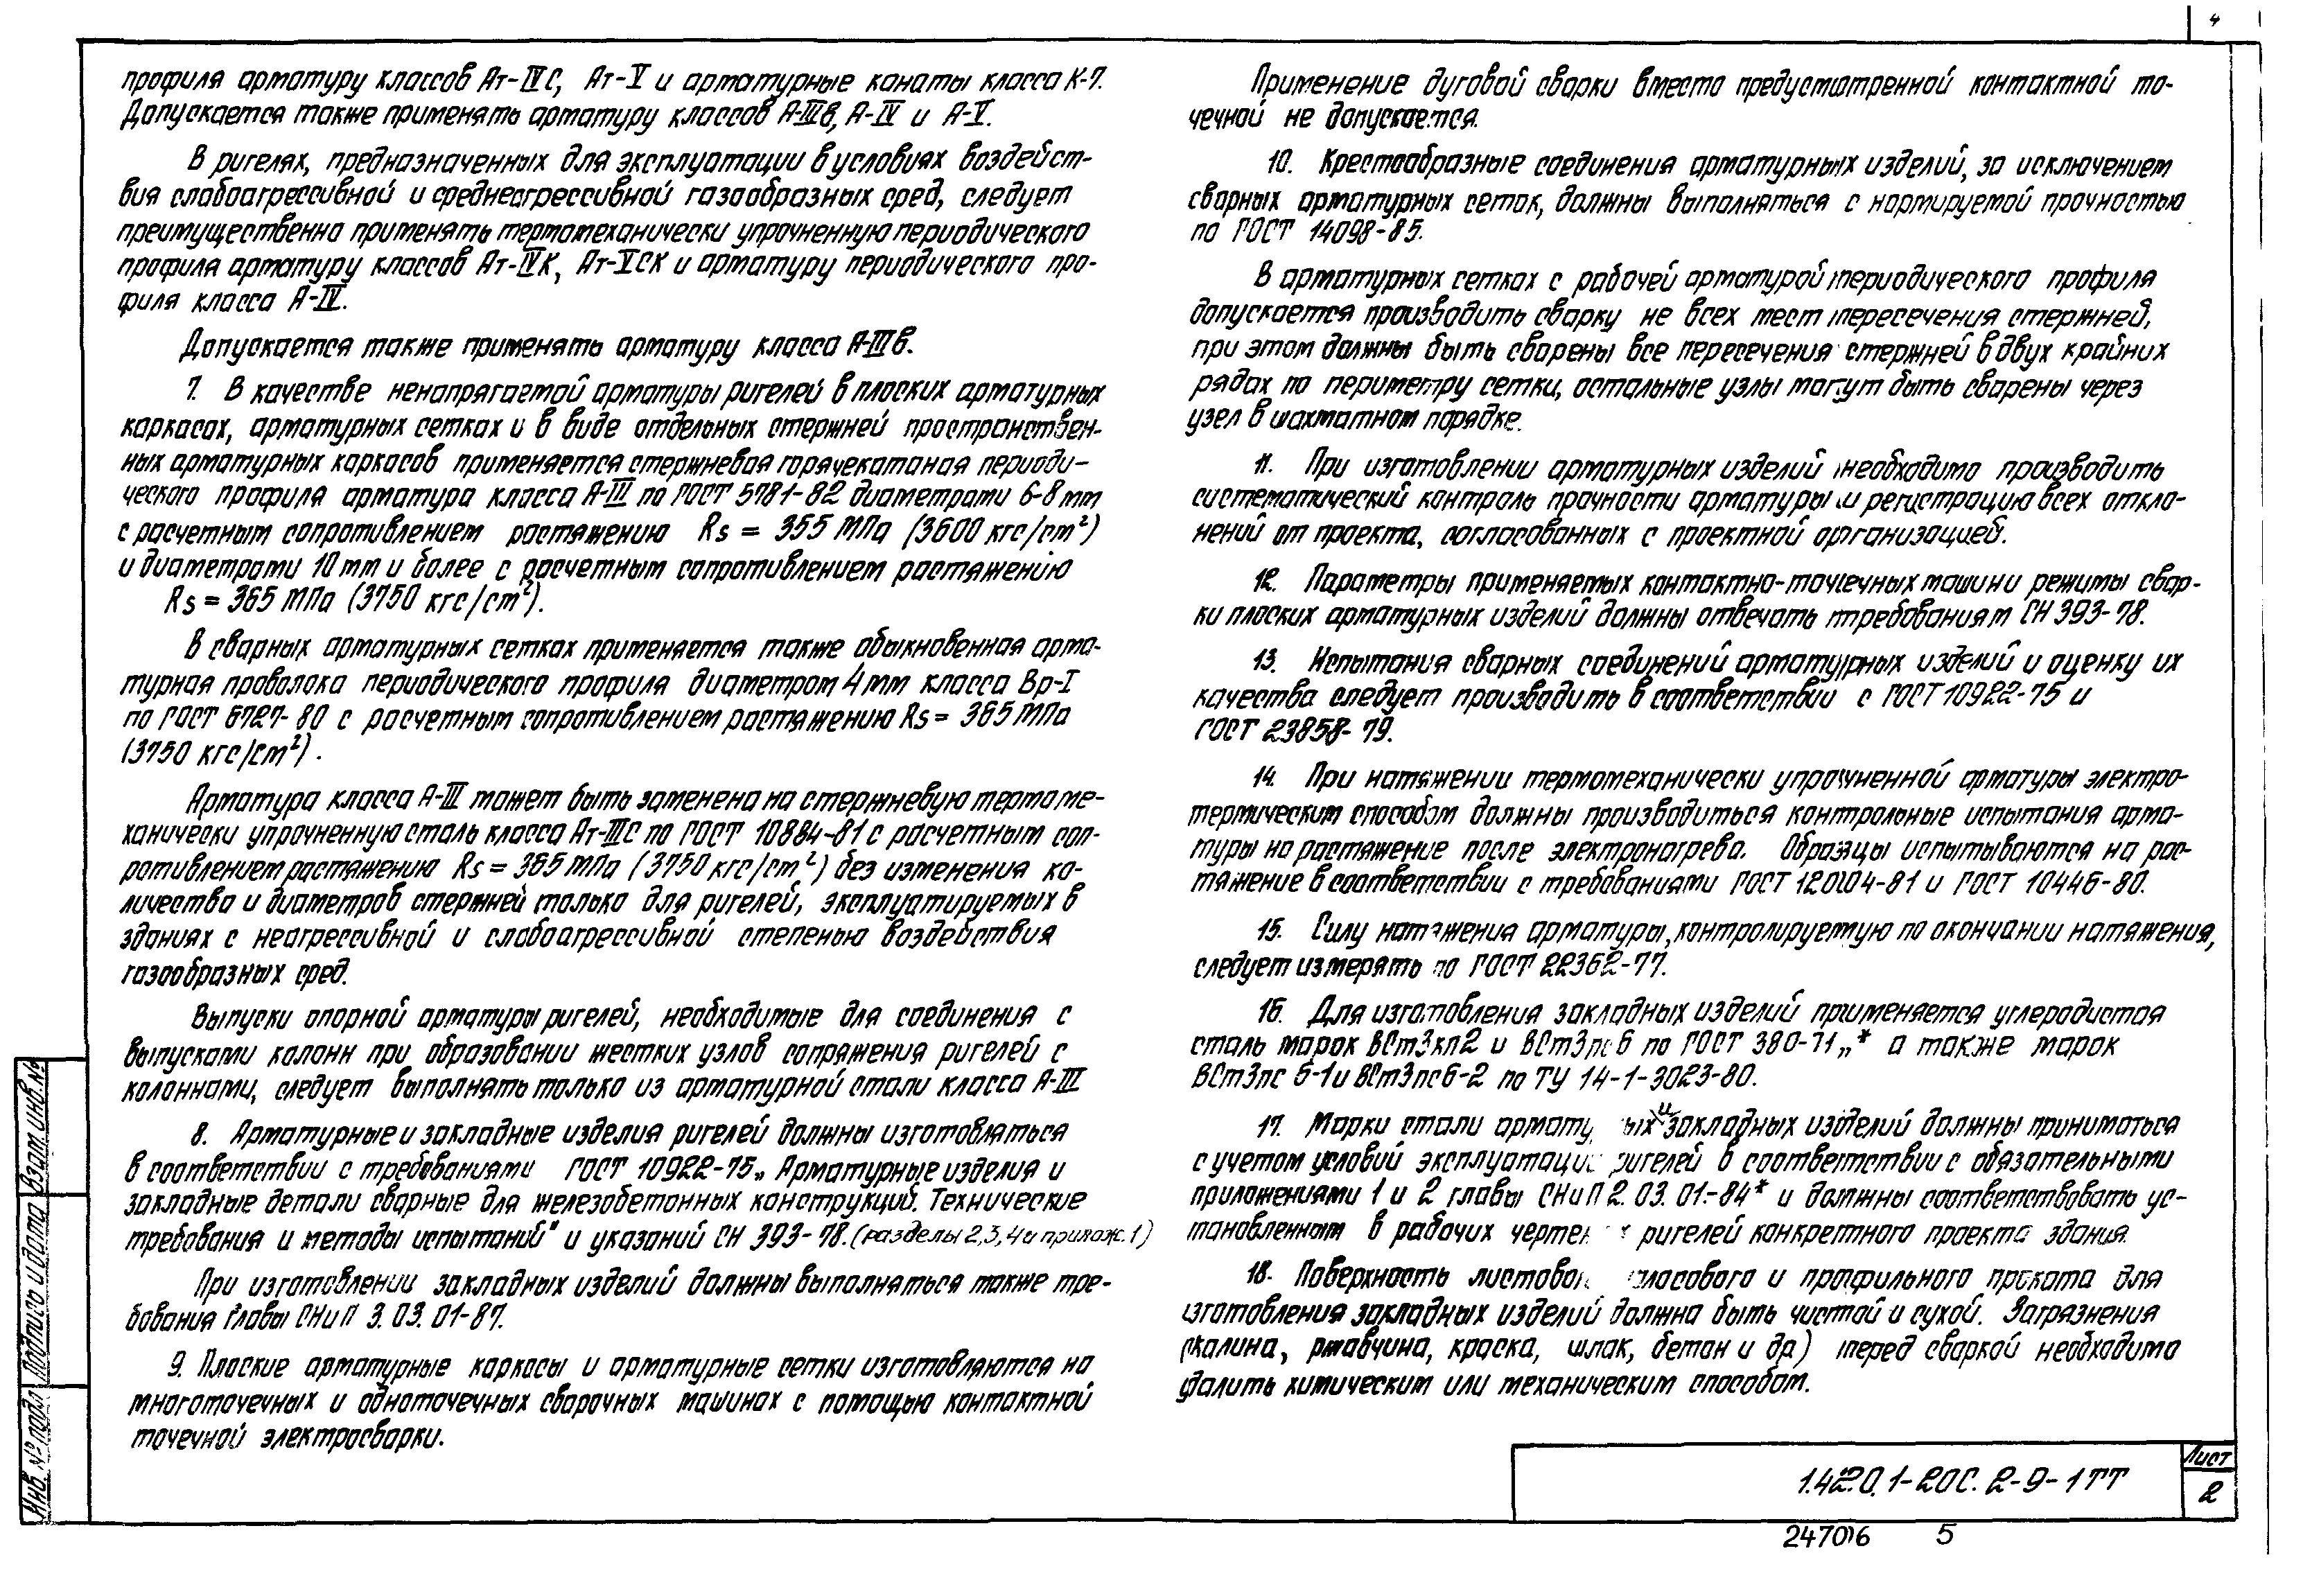 4
профиля арматуру классов Ат-IVС, Ат-V и арматурные канаты класса К-7.
Допускается также применять арматуру классов А-IIIв, А-IV и А-V.
В ригелях, предназначенных для эксплуатации в условиях воздейст-
вия слабоагрессивной и среднеагрессивной газообразных сред, следует
преимущественно применять термомеханически упрочненную периодического
профиля арматуру классов Ат-IVК, Ат-VСК и арматуру периодического про-
филя класса А-IV.
Допускается также применять арматуру класса А-IIIв.
7. В качестве ненапрягаемой арматуры ригелей в плоских арматурных
каркасах, арматурных сетках и в виде отдельных стержней пространствен-
ных арматурных каркасов применяется стержневая горячекатаная периоди-
ческого профиля арматура класса А-III по ГОСТ 5781-82 диаметрами 6-8 мм
с расчетным сопротивлением растяжению Rs = 355 МПа (3600 кгс/см²)
и диаметрами 10 мм и более с расчетным сопротивлением растяжению
Rs = 365 МПа (3750 кгс/см²).
В сварных арматурных сетках применяется также обыкновенная арма-
турная проволока периодического профиля диаметром 4 мм класса Вр-I
по ГОСТ 6727-80 с расчетным сопротивлением растяжению Rs = 365 МПа
(3750 кгс/см²).
Арматура класса А-III может быть заменена на стержневую термоме-
ханически упрочненную сталь класса Ат-IIIС по ГОСТ 10884-81 с расчетным соп-
ротивлением растяжению Rs = 365 МПа (3750 кгс/см²) без изменения ко-
личества и диаметров стержней только для ригелей, эксплуатируемых в
зданиях с неагрессивной и слабоагрессивной степенью воздействия
газообразных сред.
Выпуски опорной арматуры ригелей, необходимые для соединения с
выпусками колонн при образовании жестких узлов сопряжения ригелей с
колоннами, следует выполнять только из арматурной стали класса А-III
8. Арматурные и закладные изделия ригелей должны изготовляться
в соответствии с требованиями ГОСТ 10922-75 „Арматурные изделия и
закладные детали сварные для железобетонных конструкций. Технические
требования и методы испытаний" и указаний СН 393-78. (разделы 2,3,4 и прилож. 1)
При изготовлении закладных изделий должны выполняться также тре-
бования главы СНиП 3.03.01-87.
9. Плоские арматурные каркасы и арматурные сетки изготовляются на
многоточечных и одноточечных сварочных машинах с помощью контактной
точечной электросварки.
Применение дуговой сварки вместо предусмотренной контактной то-
чечной не допускается.
10. Крестообразные соединения арматурных изделий, за исключением
сварных арматурных сеток, должны выполняться с нормируемой прочностью
по ГОСТ 14098-85.
В арматурных сетках с рабочей арматурой периодического профиля
допускается производить сварку не всех мест пересечения стержней,
при этом должны быть сварены все пересечения стержней в двух крайних
рядах по периметру сетки, остальные узлы могут быть сварены через
узел в шахматном порядке.
11. При изготовлении арматурных изделий необходимо производить
систематический контроль прочности арматуры и регистрацию всех откло-
нений от проекта, согласованных с проектной организацией.
12. Параметры применяемых контактно-точечных машин и режимы свар-
ки плоских арматурных изделий должны отвечать требованиям СН 393-78.
13. Испытания сварных соединений арматурных изделий и оценку их
качества следует производить в соответствии с ГОСТ 10922-75 и
ГОСТ 23858-79.
14. При натяжении термомеханически упрочненной арматуры электро-
термическим способом должны производиться контрольные испытания арма-
туры на растяжение после электронагрева. Образцы испытываются на рас-
тяжение в соответствии с требованиями ГОСТ 12004-81 и ГОСТ 10446-80.
15. Силу натяжения арматуры, контролируемую по окончании натяжения,
следует измерять по ГОСТ 22362-77.
16. Для изготовления закладных изделий применяется углеродистая
сталь марок ВСт3кп2 и ВСт3пс6 по ГОСТ 380-71„* а также марок
ВСт3пс 6-1 и ВСт3пс6-2 по ТУ 14-1-3023-80.
17. Марки стали армату ых и закладных изделий должны приниматься
с учетом условий эксплуатации ригелей в соответствии с обязательными
приложениями 1 и 2 главы СНиП 2.03.01-84* и должны соответствовать ус-
тановленным в рабочих черте ригелей конкретного проекта здания.
18. Поверхность листово ласового и профильного проката для
изготовления закладных изделий должна быть чистой и сухой. Загрязнения
(окалина, ржавчина, краска, шлак, бетон и др.) перед сваркой необходимо
удалить химическим или механическим способом.
Взам. инв. №
Подпись и дата
Инв. № подл
1.420.1-20С.2-9-1ТТ
Лист
2
247016 5